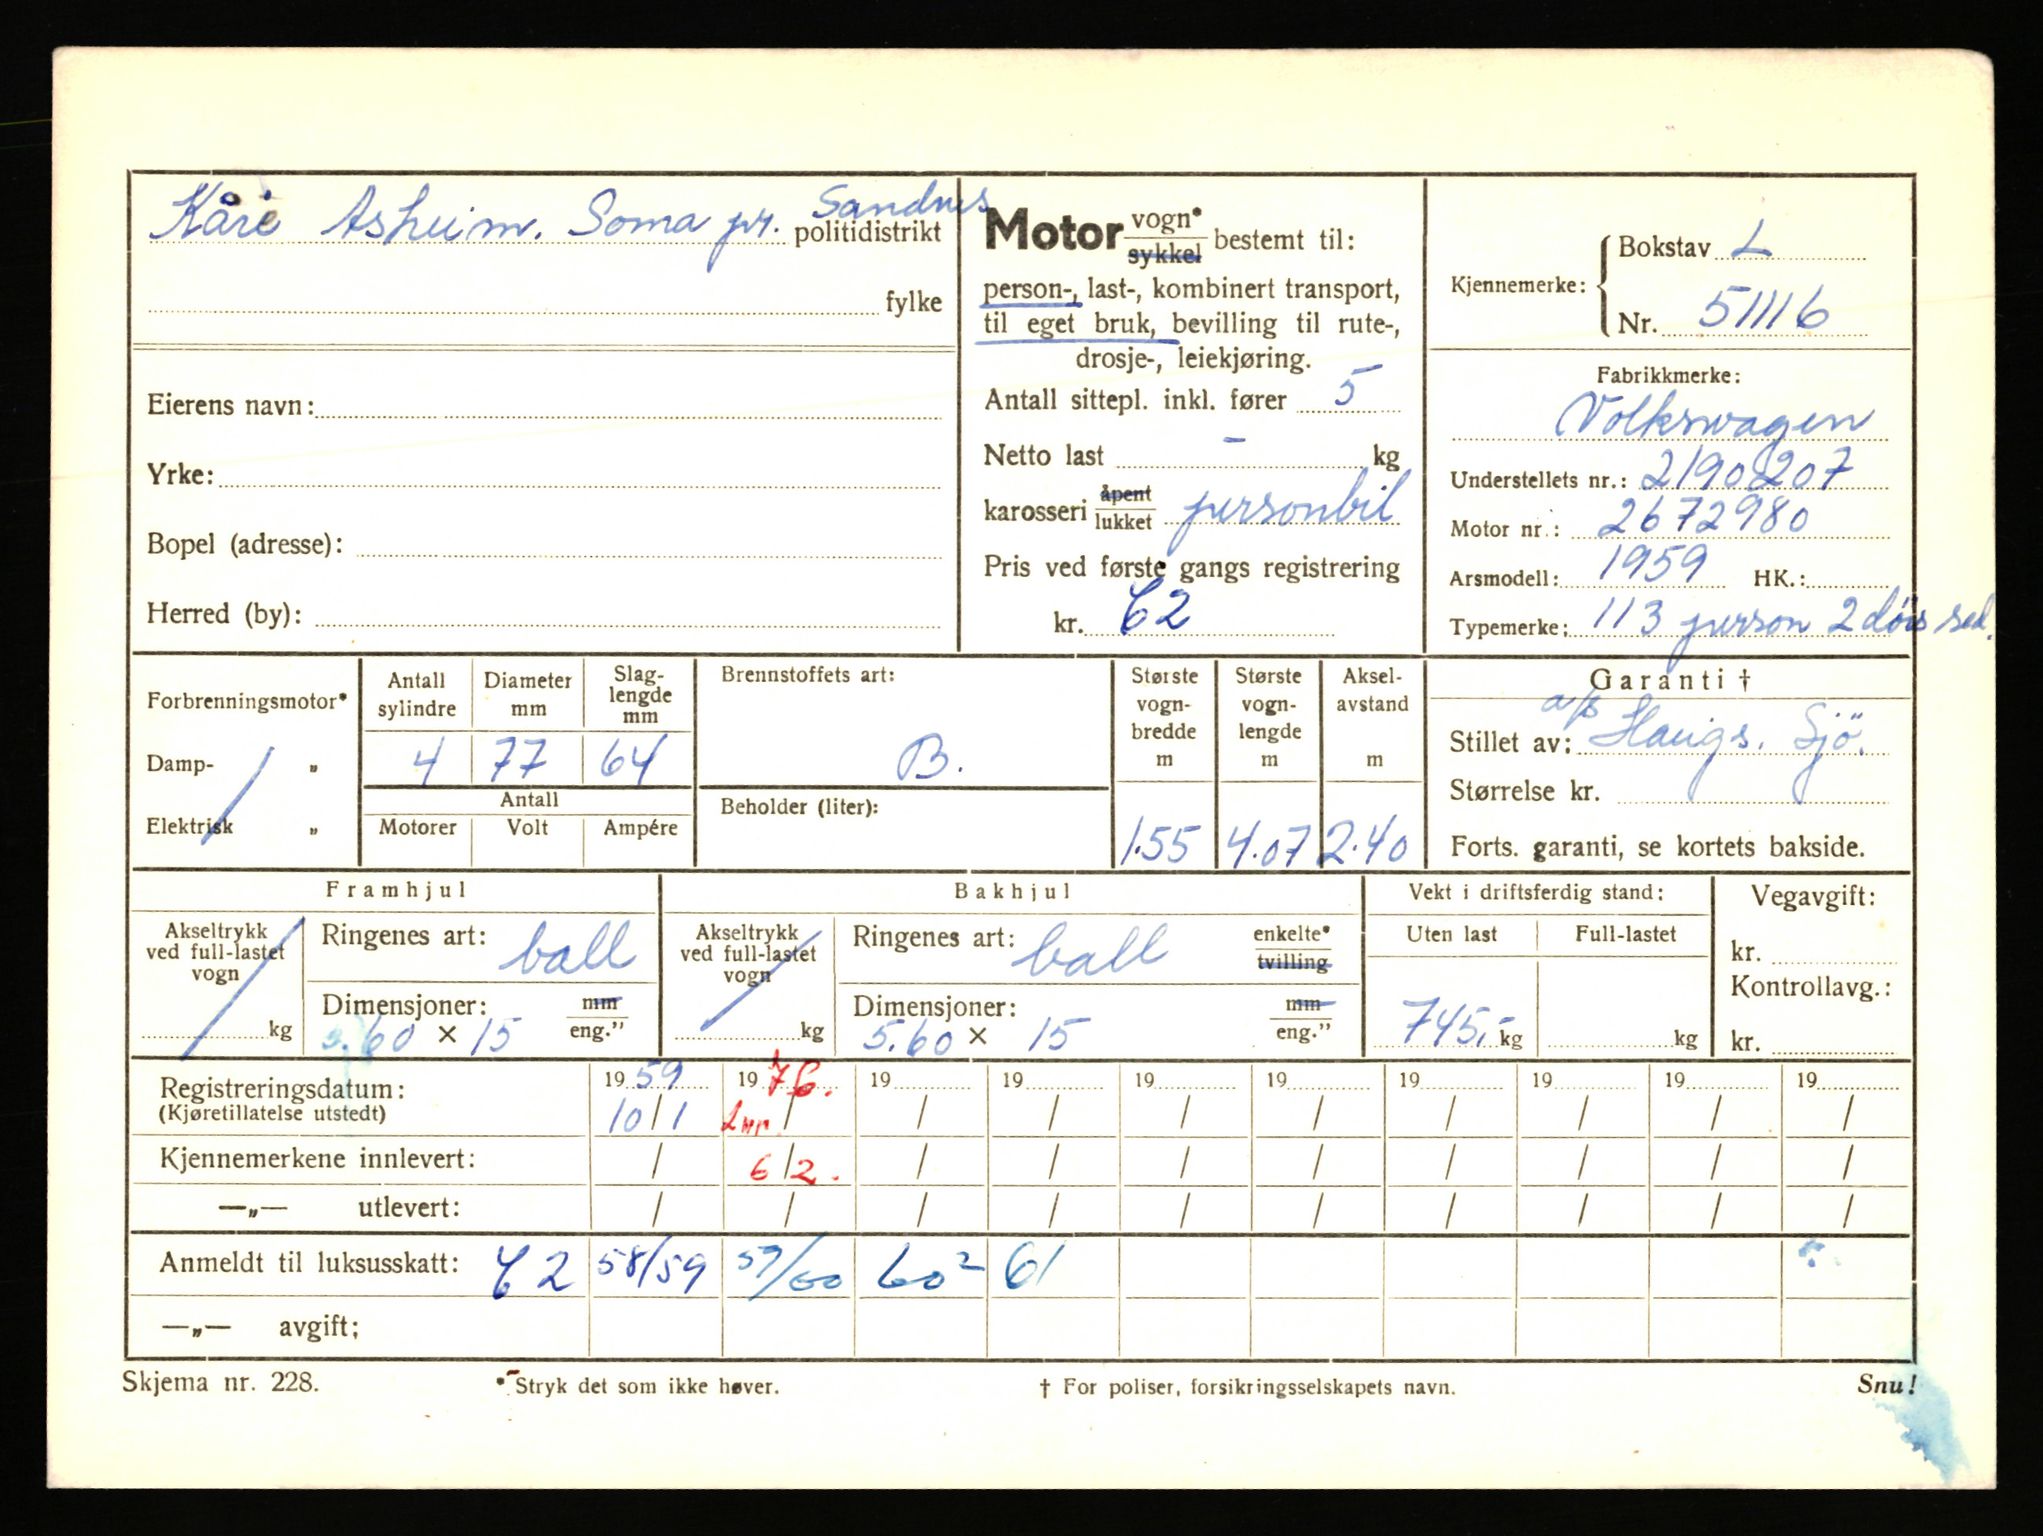 Kåre Asheim. Soma pr. Sandnes
politidistrikt
fylke
Eierens navn:
Yrke:
Bopel (adresse):
Herred (by):
Motor vogn* sykkel bestemt til:
person-, last-, kombinert transport,
til eget bruk, bevilling til rute-,
drosje-, leiekjøring.
Antall sittepl. inkl. fører 5
Netto last - kg
karosseri åpent lukket personbil
Pris ved første gangs registrering
kr. C2
Kjennemerke: Bokstav L
Nr. 51116
Fabrikkmerke:
Volkswagen
Understellets nr.: 2190207
Motor nr.: 2672980
Arsmodell: 1959 HK.:
Typemerke: 113 person 2 dörs sed.
Forbrenningsmotor*
Damp- „
Elektrisk „
Antall sylindre Diameter mm Slag-lengde mm
4 77 64
Antall
Motorer Volt Ampére
Brennstoffets art:
B.
Beholder (liter):
Største vogn-bredde m Største vogn-lengde m Aksel-avstand m
1.55 4.07 2.40
Garanti †
Stillet av: a/s Haugs. Sjö.
Størrelse kr.
Forts. garanti, se kortets bakside.
Framhjul
Akseltrykk ved full-lastet vogn
kg
Ringenes art: ball
Dimensjoner: mm
5.60 × 15 eng."
Bakhjul
Akseltrykk ved full-lastet vogn
kg
Ringenes art: ball enkelte* tvilling
Dimensjoner: mm
5.60 × 15 eng."
Vekt i driftsferdig stand:
Uten last Full-lastet
745,- kg kg
Vegavgift:
kr.
Kontrollavg.:
kr.
Registreringsdatum: 19 59 19 76. 19 19 19 19 19 19 19 19
(Kjøretillatelse utstedt) 10/1 / / / / / / / / /
Kjennemerkene innlevert: / 6/2. / / / / / / / /
—„— utlevert: / / / / / / / / / /
Anmeldt til luksusskatt: C2 58/59 59/60 60² 61
—„— avgift;
Skjema nr. 228. * Stryk det som ikke høver. † For poliser, forsikringsselskapets navn. Snu!